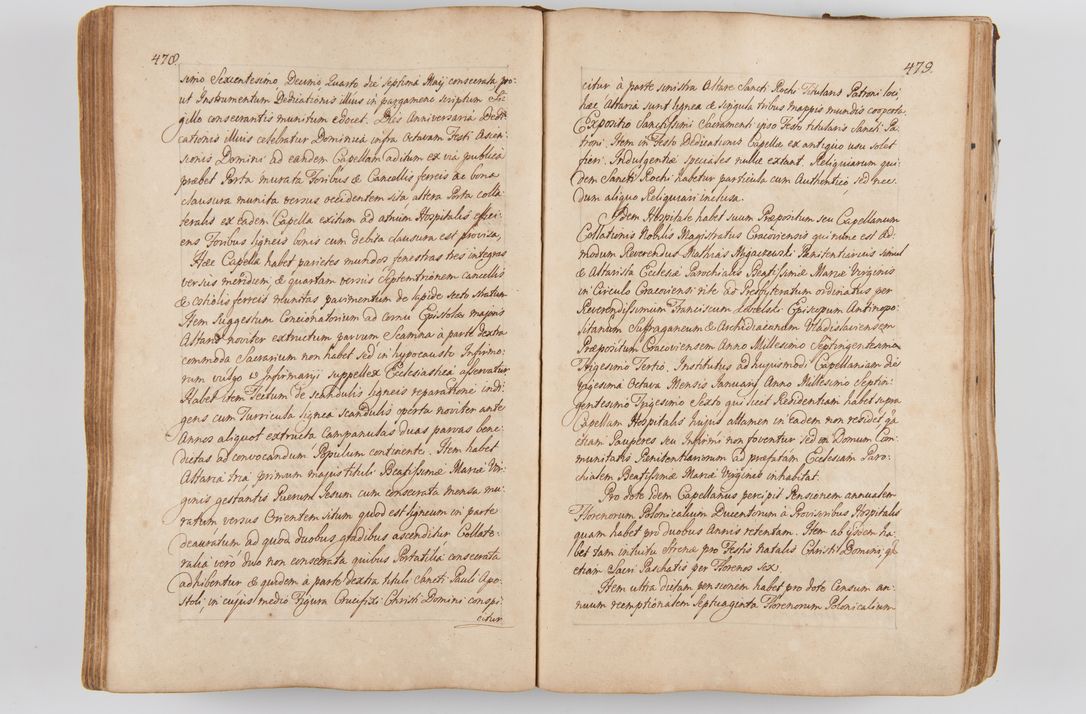 478.
simo Sexcentesimo Decimo Quarto die septima Maij consecrata pro-
ut Instrumentum Dedicationis illius in pargameno scriptum Si-
gillo consecrantis munitum edocet. Dies Anniversaria Dedi-
cationis illius celebratur Dominica infra Octavam Festi Ascen-
sionis Domini ad eandem Capellam aditum ex via publica
præbet Porta murata Foribus & Cancellis ferreis ac bona
clausura munita versus occidentem sita altera Porta colla-
teralis ex eadem Capella exitum ad atrium Hospitalis effici-
ens Foribus ligneis bonis cum debita clausura est provisa,
Hæc Capella habet parietes mundos fenestras tres integras
versus meridiem, & quartam versus Septemtrionem cancellis
& ostiolis ferreis munitas pavimentum de lapide secto stratum
Item Suggestum Concionatorium ad cornu Epistolæ majoris
Altaris noviter extructum parvum Scamna à parte dextra
commoda Sacrarium non habet sed in hypocausto Infirmo-
rum vulgo w Infirmaryi suppellex Ecclesiastica asservatur
Habet item Tectum de scandulis ligneis reparatione indi-
gens cum Turricula lignea scandulis operta noviter ante
Annos aliquot extructa campanulas duas parvas bene-
dictas ad convocandum Populum continente. Item habet
Altaria tria primum majus tituli Beatissimæ Mariæ Vir-
ginis gestantis Puerum Jesum cum consecrata mensa mu-
ratum versus Orientem situm quod est ligneum in parte
deauratum ad quod duobus gradibus ascenditur Collate-
ralia vero duo non consecrata quibus Portatilia consecrata
adhibentur & quidem à parte dextra tituli Sancti Pauli Apo-
stoli, in cujus medio Figura Crucifixi Christi Domini conspi-
citur
479.
citur à parte sinistra Altare Sancti Rochi Titularis Patroni loci
hæc Altaria sunt lignea & singula tribus mappis mundis cooperta.
Expositio Sanctissimi Sacramenti ipso Festo titularis Sancti Pa-
troni Item in Festo Dedicationis Capellæ ex antiquo usu solet
fieri. Indulgentiæ speciales nullæ extant. Reliquiarum qui-
dem Sancti Rochi habetur particula cum Authentico sed nec-
dum aliquo Reliquiari inclusa.
Idem Hospitale habet suum Præpositum seu Capellanum
Collationis Nobilis Magistratus Cracoviensis qui nunc est Ad-
modum Reverendus Mathias Migaczewski Pænitentiarius simul
& Altarista Ecclesiæ Parochialis Beatissimæ Mariæ Virginis
in Circulo Cracoviensi rite ad Presbyteratum ordinatus per
Reverendissimum Franciscum Episcopum Antinopo-
litanum Suffraganeum & Archidiaconum Vladislaviensem
Præpositum Cracoviensem Anno Millesimo Septingentesimo
Trigesimo Tertio, Institutus ad hujusmodi Capellaniam die
vigesima Octava Mensis Januarij Anno Millesimo Septin-
gentesimo Trigesimo Sexto qui licet Residentiam habet supra
Capellam Hospitalis hujus attamen in eadem non residet qa
etiam Pauperes seu Infirmi non foventur sed in Domum Com-
munitatis Pænitentiariorum ad præfatam Ecclesiam Paro-
chialem Beatissimæ Mariæ Virginis inhabitat.
Pro dote idem Capellanus percipit Pensionem annualem
Florenorum Polonicalium Ducentorum à Provisoribus Hospitalis
quam habet pro duobus Annis retentam. Item ab ijsdem ha-
bet tam intuitu Strenæ pro Festis Natalis Christi Domini, qm
etiam Sacri Paschatis per Florenos sex.
Item ultra dictam pensionem habet pro dote Censum an-
nuum reemptionalem Septuaginta Florenorum Polonicalium